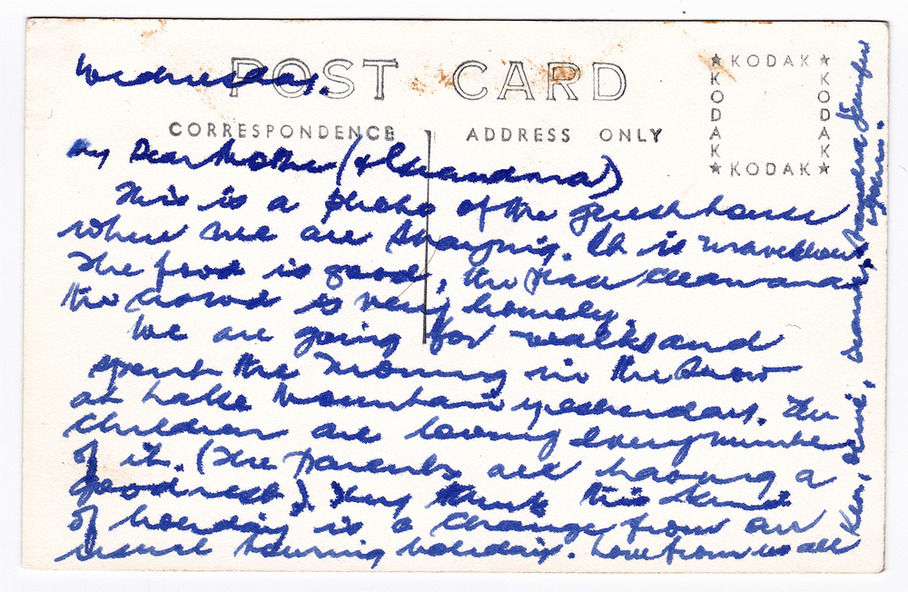 POST CARD
CORRESPONDENCE ADDRESS ONLY
★ KODAK ★
KODAK
KODAK
★ KODAK ★
Wednesday.
My Dear Mother (& Grandma)
This is a photo of the guesthouse
where we are staying. It is marvellous
The food is good, the place clean and
the crowd is very homely.
We are going for walks and
spent the morning in the snow
at Lake Mountain yesterday. The
children are loving every minute
of it. (The parents are having a
good rest). They think this kind
of holiday is a change from our
usual touring holiday. Love from us all
Ken, Sandra Jennifer
& John.